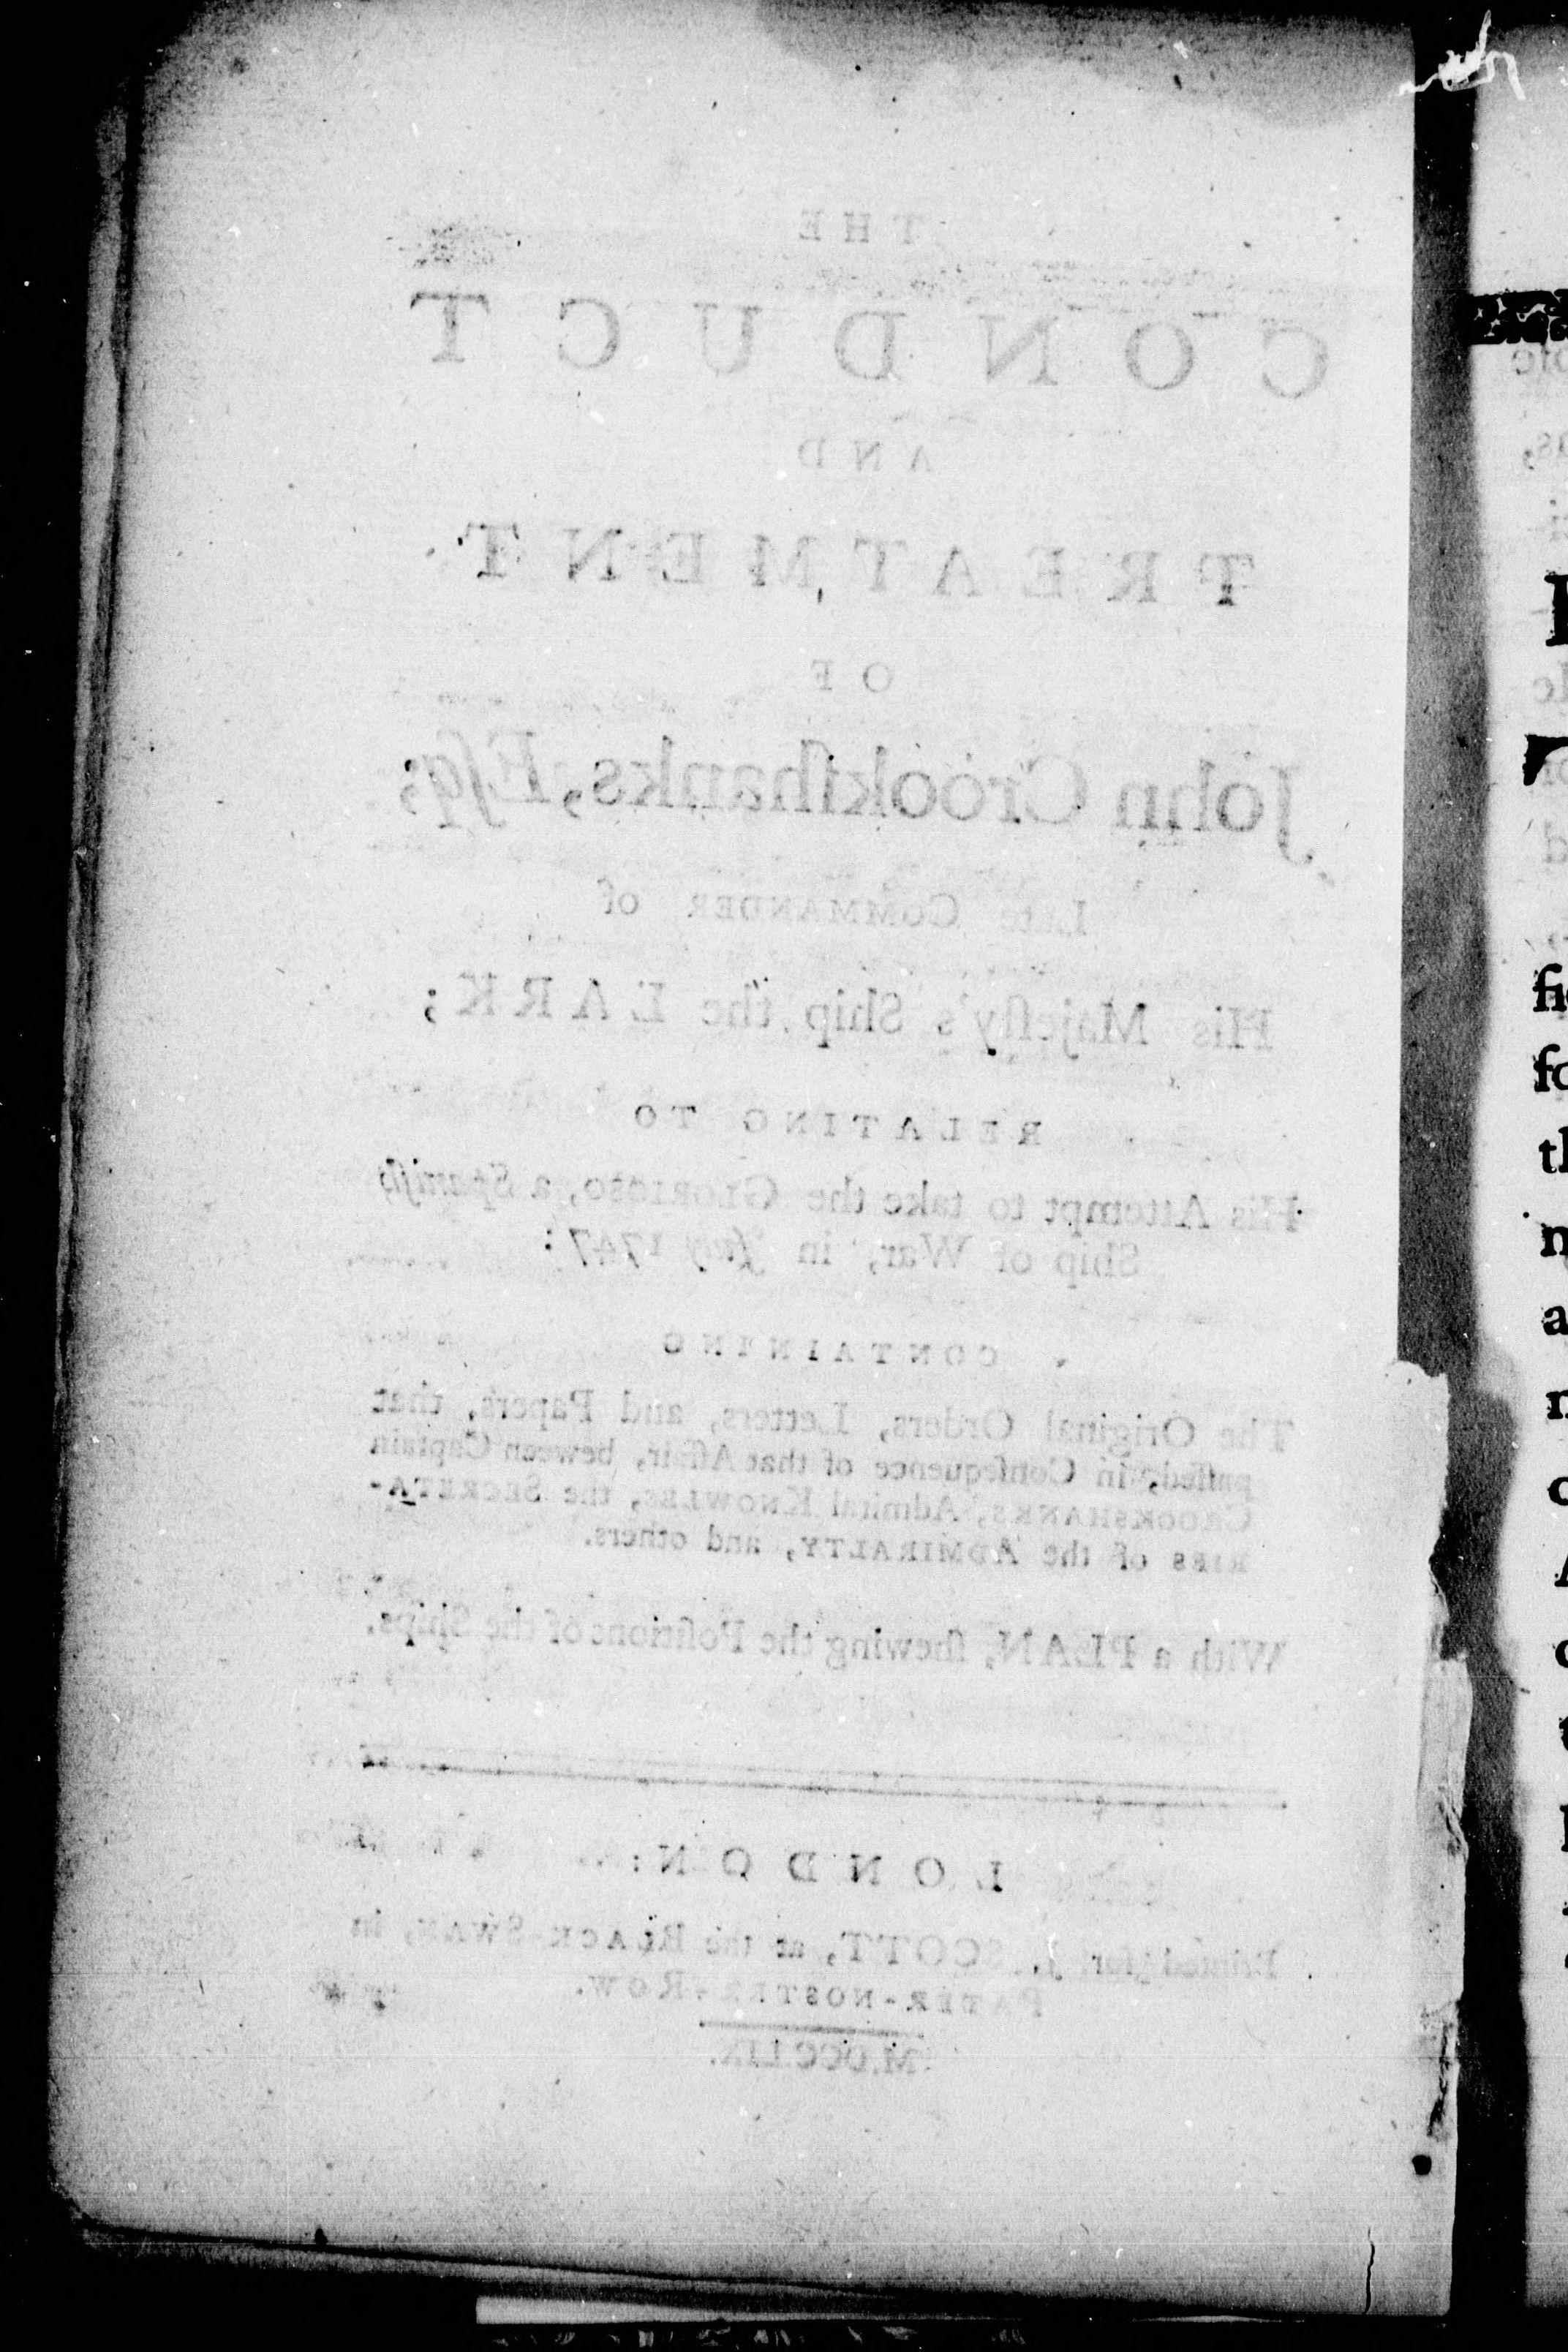 THE
CONDUCT
AND
TREATMENT
OF
John Crookſhanks, Eſq;
Late COMMANDER of
His Majeſty's Ship the LARK;
RELATING TO
His Attempt to take the GLORIOSO, a Spaniſh
Ship of War, in July 1747:
CONTAINING
The Original Orders, Letters, and Papers, that
paſſed, in Conſequence of that Affair, between Captain
CROOKSHANKS, Admiral KNOWLES, the SECRETA-
RIES of the ADMIRALTY, and others.
With a PLAN, ſhewing the Poſitions of the Ships.
LONDON:
Printed for J. SCOTT, at the BLACK-SWAN, in
PATER-NOSTER-ROW.
M.DCC.LIX.